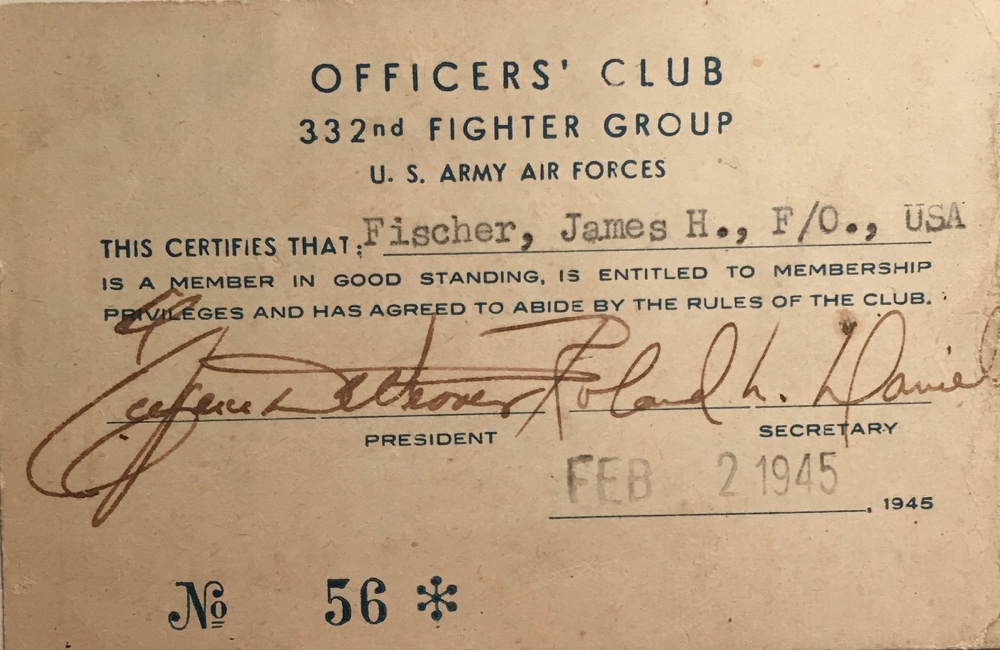 OFFICERS' CLUB
332nd FIGHTER GROUP
U. S. ARMY AIR FORCES
THIS CERTIFIES THAT: Fischer, James H., F/O., USA
IS A MEMBER IN GOOD STANDING, IS ENTITLED TO MEMBERSHIP
PRIVILEGES AND HAS AGREED TO ABIDE BY THE RULES OF THE CLUB.
Roland W. Daniel
PRESIDENT SECRETARY
FEB 2 1945
, 1945
No 56 *